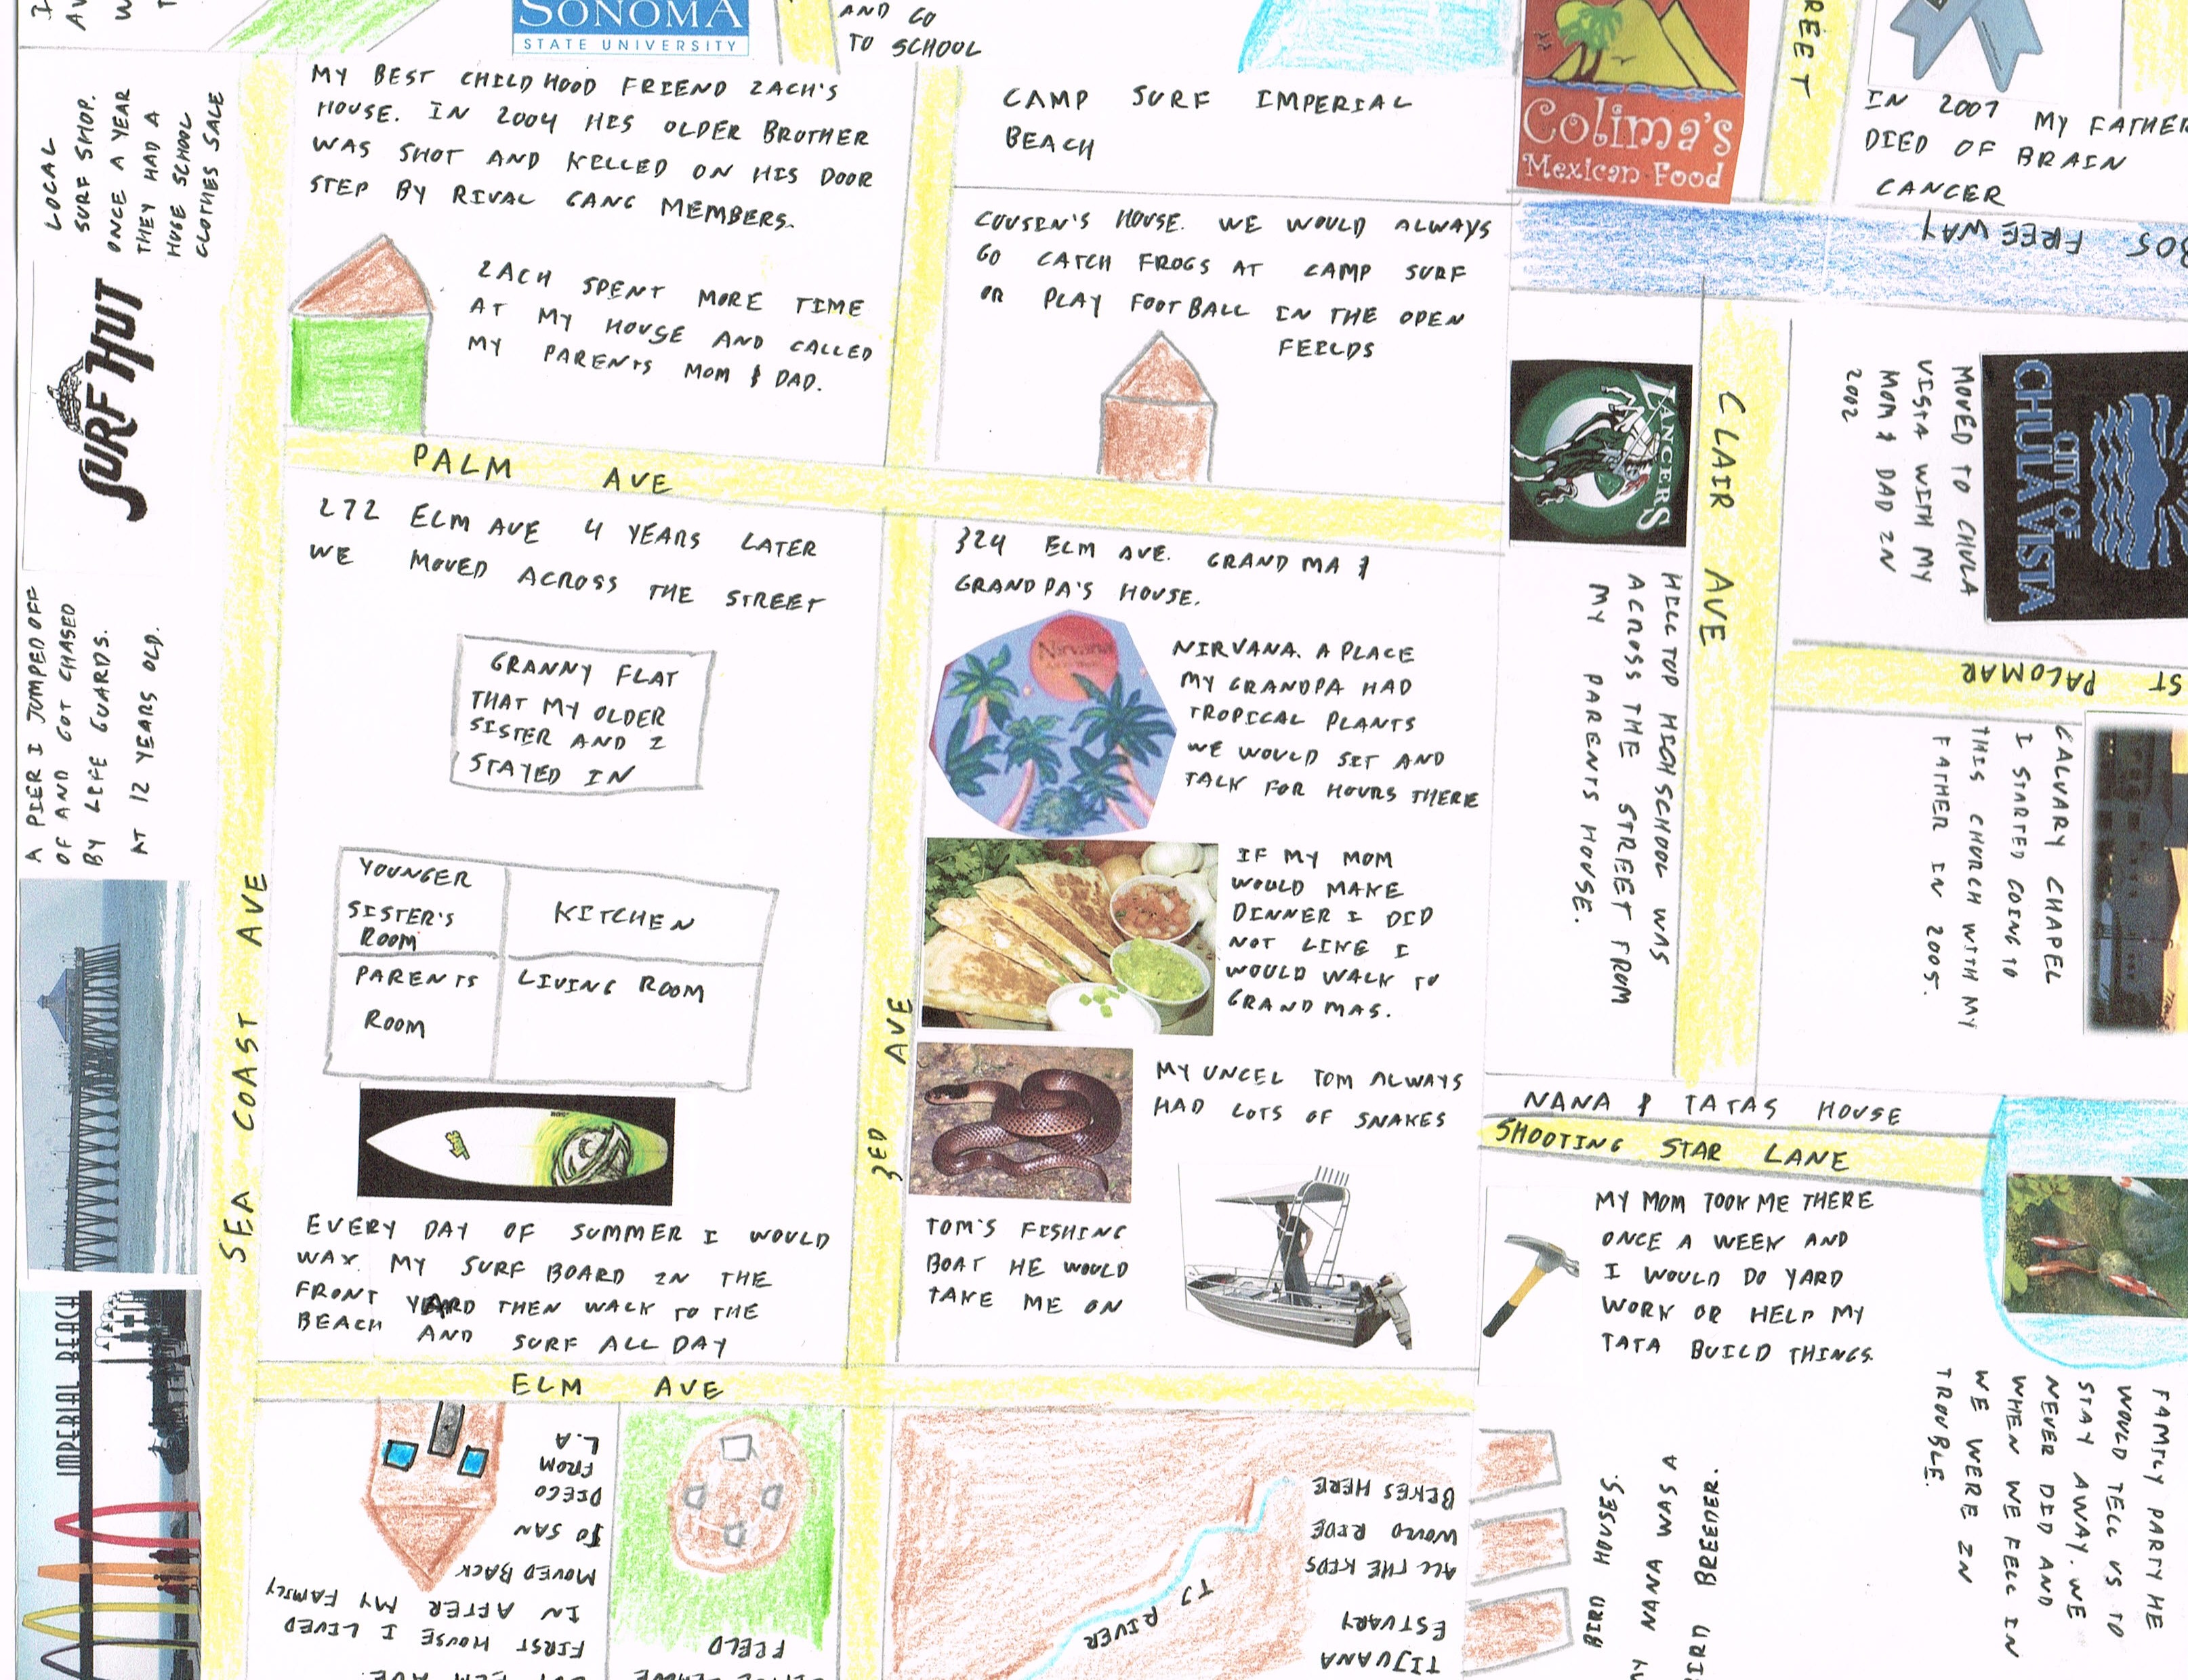 SONOMA
STATE UNIVERSITY
AND GO
TO SCHOOL
MY BEST CHILDHOOD FRIEND ZACH'S
HOUSE. IN 2004 HIS OLDER BROTHER
WAS SHOT AND KILLED ON HIS DOOR
STEP BY RIVAL GANG MEMBERS.
ZACH SPENT MORE TIME
AT MY HOUSE AND CALLED
MY PARENTS MOM & DAD.
CAMP SURF IMPERIAL
BEACH
COUSIN'S HOUSE. WE WOULD ALWAYS
GO CATCH FROGS AT CAMP SURF
OR PLAY FOOTBALL IN THE OPEN
FEILDS
Colima's
Mexican Food
REET
IN 2007 MY FATHER
DIED OF BRAIN
CANCER
805 FREEWAY
LOCAL
SURF SHOP.
ONCE A YEAR
THEY HAD A
HUGE SCHOOL
CLOTHES SALE
SURF HUT
A PIER I JUMPED OFF
OF AND GOT CHASED
BY LIFE GUARDS.
AT 12 YEARS OLD.
IMPERIAL BEACH
SEA COAST AVE
PALM AVE
272 ELM AVE 4 YEARS LATER
WE MOVED ACROSS THE STREET
GRANNY FLAT
THAT MY OLDER
SISTER AND I
STAYED IN
YOUNGER
SISTER'S
ROOM
KITCHEN
PARENTS
ROOM
LIVING ROOM
EVERY DAY OF SUMMER I WOULD
WAX MY SURF BOARD IN THE
FRONT YARD THEN WALK TO THE
BEACH AND SURF ALL DAY
3ED AVE
324 ELM AVE. GRANDMA &
GRANDPA'S HOUSE.
Nirvana
NIRVANA. A PLACE
MY GRANDPA HAD
TROPICAL PLANTS
WE WOULD SIT AND
TALK FOR HOURS THERE
IF MY MOM
WOULD MAKE
DINNER I DID
NOT LIKE I
WOULD WALK TO
GRANDMAS.
MY UNCEL TOM ALWAYS
HAD LOTS OF SNAKES
TOM'S FISHING
BOAT HE WOULD
TAKE ME ON
ELM AVE
FIRST HOUSE I LIVED
IN AFTER MY FAMILY
MOVED BACK
TO SAN
DIEGO
FROM
L.A
FEILD
TJ RIVER
TIJUANA
ESTUARY
ALL THE KIDS
WOULD RIDE
BIKES HERE
LANCERS
HILLTOP HIGHSCHOOL WAS
ACROSS THE STREET FROM
MY PARENTS HOUSE.
CLAIR AVE
CITY OF
CHULA VISTA
MOVED TO CHULA
VISTA WITH MY
MOM & DAD IN
2002
PALOMAR ST
CALVARY CHAPEL
I STARTED GOING TO
THIS CHURCH WITH MY
FATHER IN 2005.
NANA & TATAS HOUSE
SHOOTING STAR LANE
MY MOM TOOK ME THERE
ONCE A WEEK AND
I WOULD DO YARD
WORK OR HELP MY
TATA BUILD THINGS.
FAMILY PARTY HE
WOULD TELL US TO
STAY AWAY. WE
NEVER DID AND
WHEN WE FELL IN
WE WERE IN
TROUBLE.
Y NANA WAS A
IRD BREEDER.
BIRD HOUSES